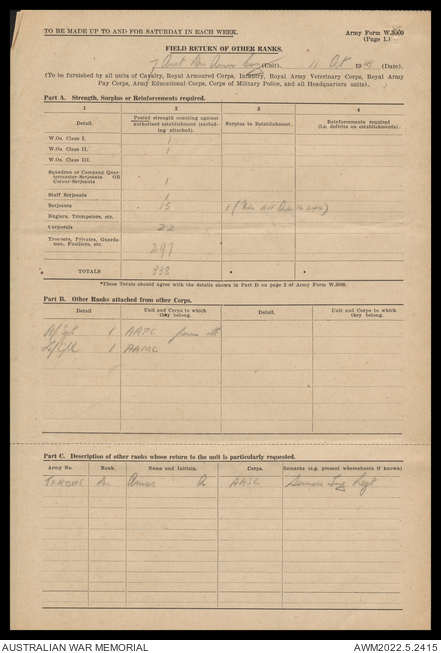 TO BE MADE UP TO AND FOR SATURDAY IN EACH WEEK.
Army Form W.3009
(Page 1.)
FIELD RETURN OF OTHER RANKS.
7 Aust Div (Unit). 11 Oct 19 (Date).
(To be furnished by all units of Cavalry, Royal Armoured Corps, Infantry, Royal Army Veterinary Corps, Royal Army
Pay Corps, Army Educational Corps, Corps of Military Police, and all Headquarters units).
Part A. Strength, Surplus or Reinforcements required.
1 2 3 4
Detail. Posted strength counting against authorised establishment (excluding attached). Surplus to Establishment. Reinforcements required (i.e. deficits on establishments).
W.Os. Class I. 1
W.Os. Class II. 1
W.Os. Class III.
Squadron or Company Quartermaster-Serjeants OR Colour-Serjeants 1
Staff Serjeants 1
Serjeants 15 1
Buglers, Trumpeters, etc.
Corporals 22
Troopers, Privates, Guardsmen, Fusiliers, etc. 297
TOTALS 338 * *
*These Totals should agree with the details shown in Part D on page 2 of Army Form W.3009.
Part B. Other Ranks attached from other Corps.
Detail Unit and Corps to which they belong. Detail. Unit and Corps to which they belong.
Sgt 1 AAPC att
1 AAMC
Part C. Description of other ranks whose return to the unit is particularly requested.
Army No. Rank. Name and Initials. Corps. Remarks (e.g. present whereabouts if known)
Amos A AASC Regt
AUSTRALIAN WAR MEMORIAL
AWM2022.5.2415